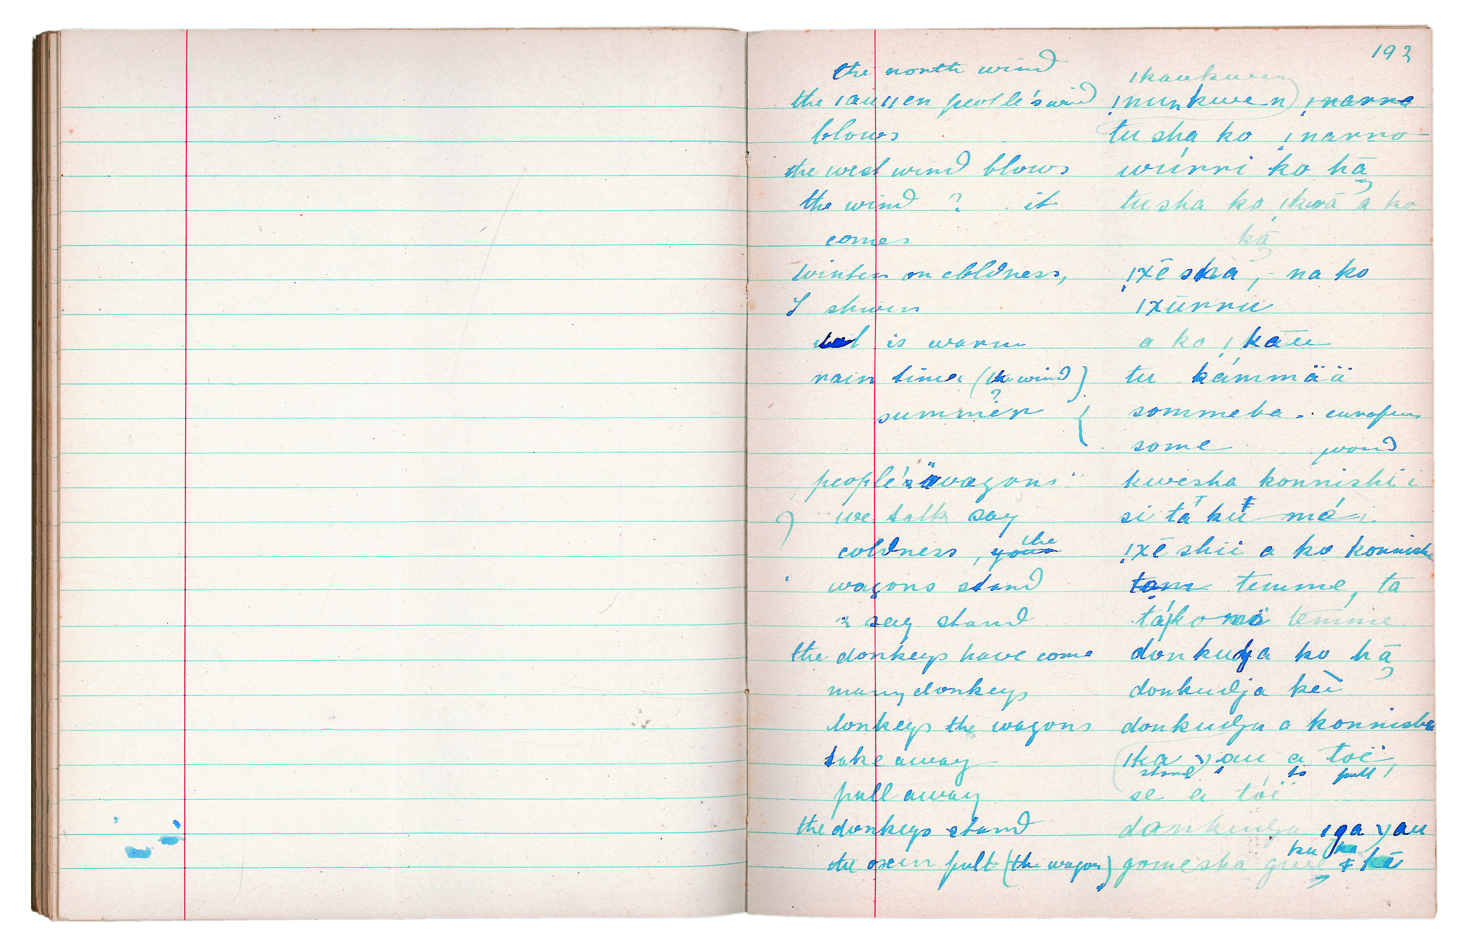 192
the north wind ǀkaukwen
the ǀauǀǀen people's wind ǃnunkwen) ǃnarro
blows tu sha ko ǃnarro
the west wind blows wúrri ko hā
the wind ? it tusha ko ǀkwā a ko
comes kā
winter or coldness, ǃxē shia, na ko
I shiver ǀxūrru
is warm a ko ǃkāu
rain time (the wind) tu kámmää
summer ? sommeba . european
some word
people's wagons kwesha konnishi i
we talk say si tá kū má
coldness, your the ǃxē shii a ko konnisha
wagons stand tam temme, ta
? say stand tá ko má temme
the donkeys have come donkudja ko hā
many donkeys donkudja kéi
donkeys the wagons donkudja a konnisha
take away ǀka yau a toë,
stand to pull
pull away se a tóë
the donkeys stand donkudja ǀga yau
ku ka
the oxen pull (the wagon) gomesha guse kē